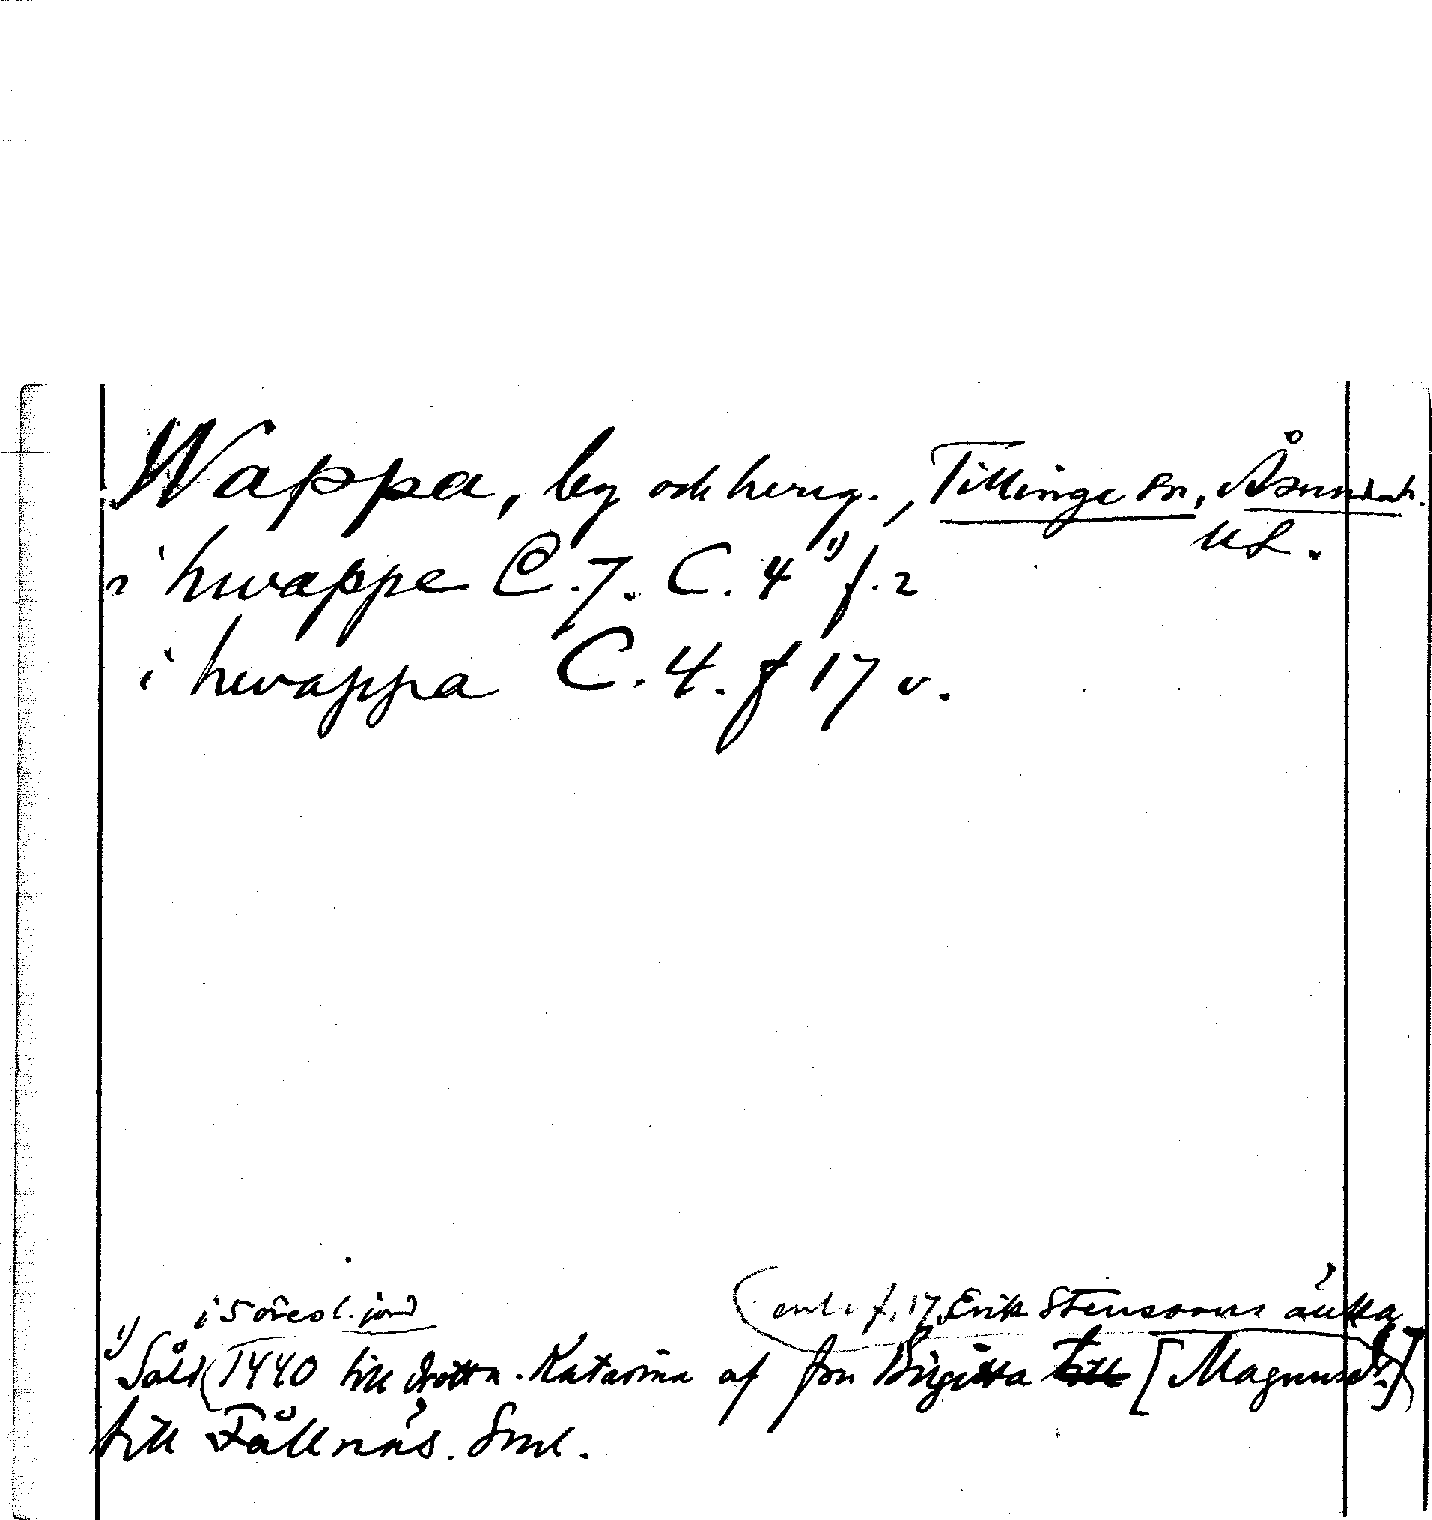 Wappa, by och herrg., Tillinge sn, Åsundah.
UL.
i hwappe C.7. C.4 ¹⁾ f. 2
i hwappa C.4. f 17 v.
i 5 öresl. jord
enl. f. 17 Erik Stenssons änka
¹⁾ Såld 1440 till drottn. Katarina af fru Birgitta [Magnusd:r]
till Fållnäs. Sml.